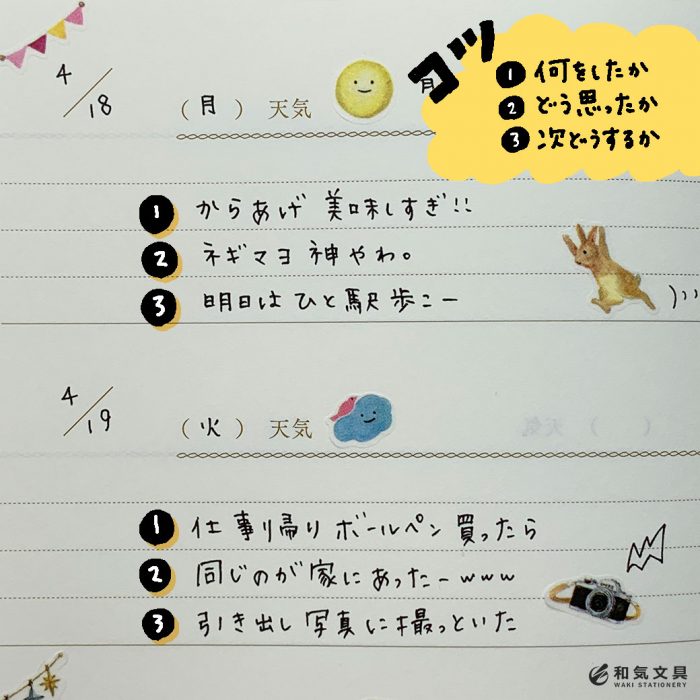 コツ
❶何をしたか
❷どう思ったか
❸次どうするか
4/18 (月) 天気
❶からあげ 美味しすぎ!!
❷ネギマヨ 神やわ。
❸明日は ひと駅 歩こー
4/19 (火) 天気
❶仕事り帰り ボールペン 買ったら
❷同じのが 家にあったーwww
❸引き出し 写真に撮っといた
和気文具
WAKI STATIONERY